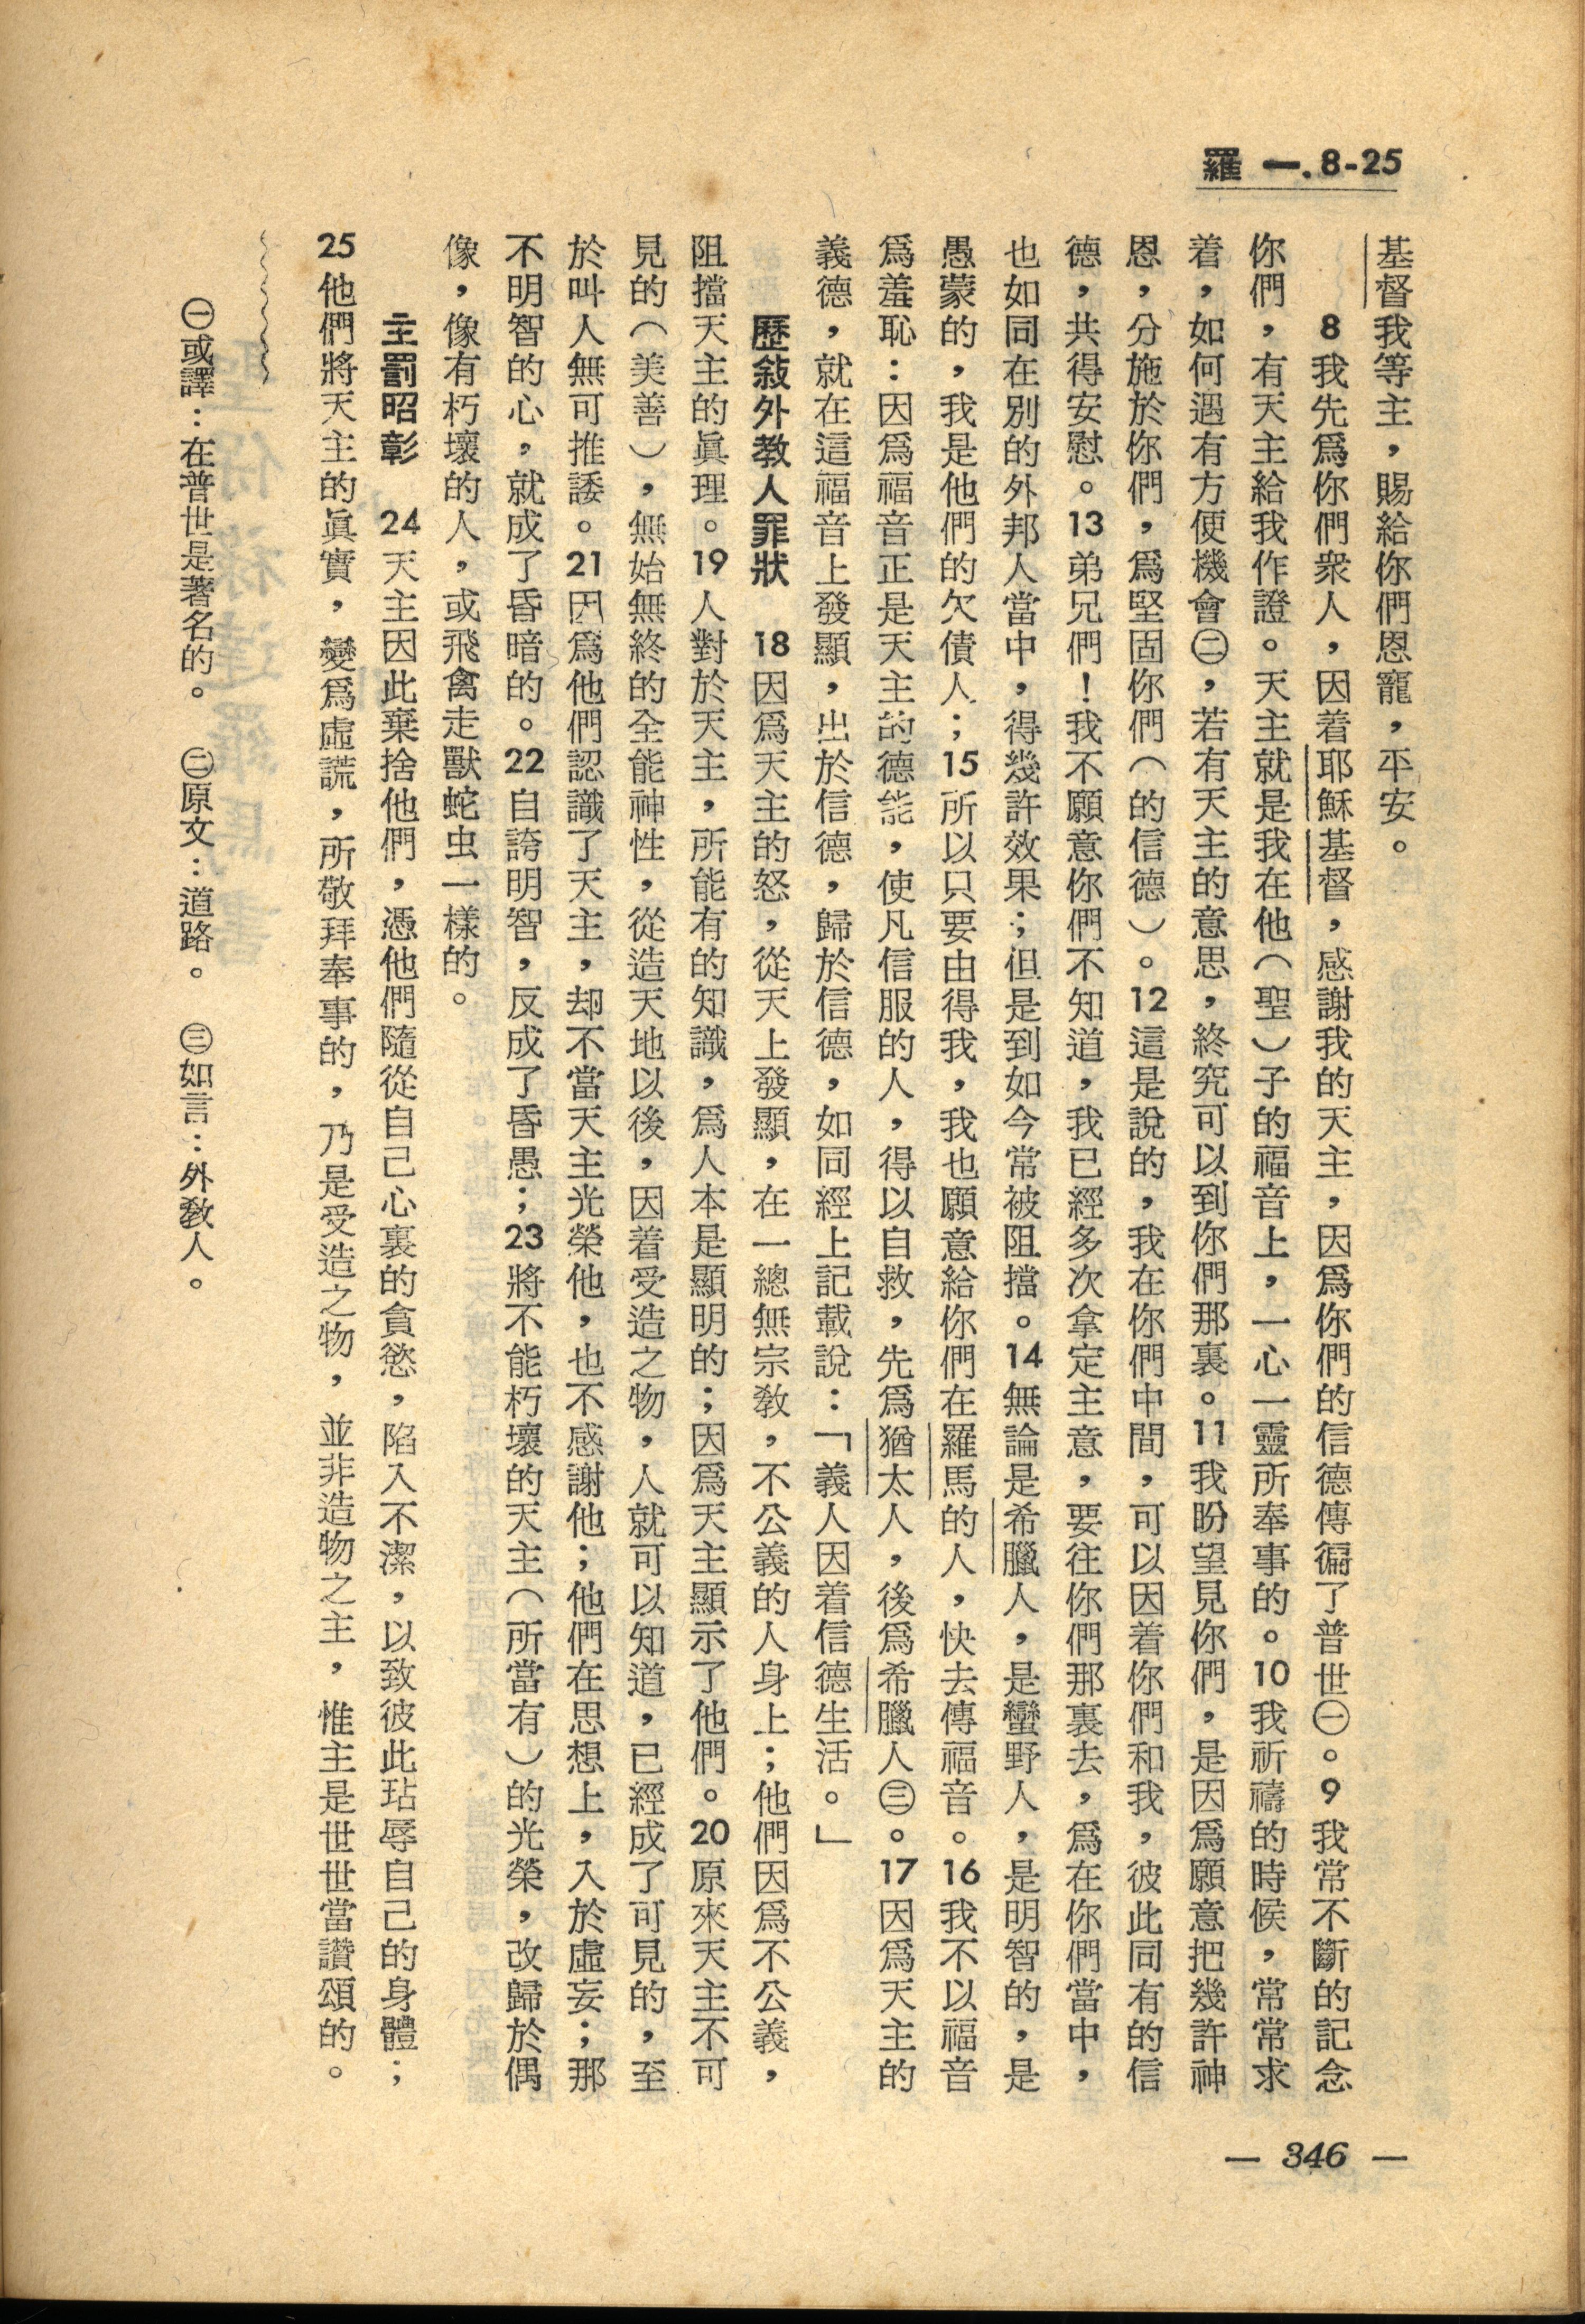 羅 一. 8-25
基督我等主，賜給你們恩寵，平安。
8 我先爲你們衆人，因着耶穌基督，感謝我的天主，因爲你們的信德傳徧了普世㊀。9 我常不斷的記念
你們，有天主給我作證。天主就是我在他（聖）子的福音上，一心一靈所奉事的。10 我祈禱的時候，常常求
着，如何遇有方便機會㊁，若有天主的意思，終究可以到你們那裏。11 我盼望見你們，是因爲願意把幾許神
恩，分施於你們，爲堅固你們（的信德）。12 這是說的，我在你們中間，可以因着你們和我，彼此同有的信
德，共得安慰。13 弟兄們！我不願意你們不知道，我已經多次拿定主意，要往你們那裏去，爲在你們當中，
也如同在別的外邦人當中，得幾許效果；但是到如今常被阻擋。14 無論是希臘人，是蠻野人，是明智的，是
愚蒙的，我是他們的欠債人；15 所以只要由得我，我也願意給你們在羅馬的人，快去傳福音。16 我不以福音
爲羞恥：因爲福音正是天主的德能，使凡信服的人，得以自救，先爲猶太人，後爲希臘人㊂。17 因爲天主的
義德，就在這福音上發顯，出於信德，歸於信德，如同經上記載說：「義人因着信德生活。」
歷敍外教人罪狀 18 因爲天主的怒，從天上發顯，在一總無宗教，不公義的人身上；他們因爲不公義，
阻擋天主的眞理。19 人對於天主，所能有的知識，爲人本是顯明的；因爲天主顯示了他們。20 原來天主不可
見的（美善），無始無終的全能神性，從造天地以後，因着受造之物，人就可以知道，已經成了可見的，至
於叫人無可推諉。21 因爲他們認識了天主，却不當天主光榮他，也不感謝他；他們在思想上，入於虛妄；那
不明智的心，就成了昏暗的。22 自誇明智，反成了昏愚；23 將不能朽壞的天主（所當有）的光榮，改歸於偶
像，像有朽壞的人，或飛禽走獸蛇虫一樣的。
主罰昭彰 24 天主因此棄捨他們，憑他們隨從自己心裏的貪慾，陷入不潔，以致彼此玷辱自己的身體；
25 他們將天主的眞實，變爲虛謊，所敬拜奉事的，乃是受造之物，並非造物之主，惟主是世世當讚頌的。
㊀或譯：在普世是著名的。 ㊁原文：道路。 ㊂如言：外教人。
— 346 —